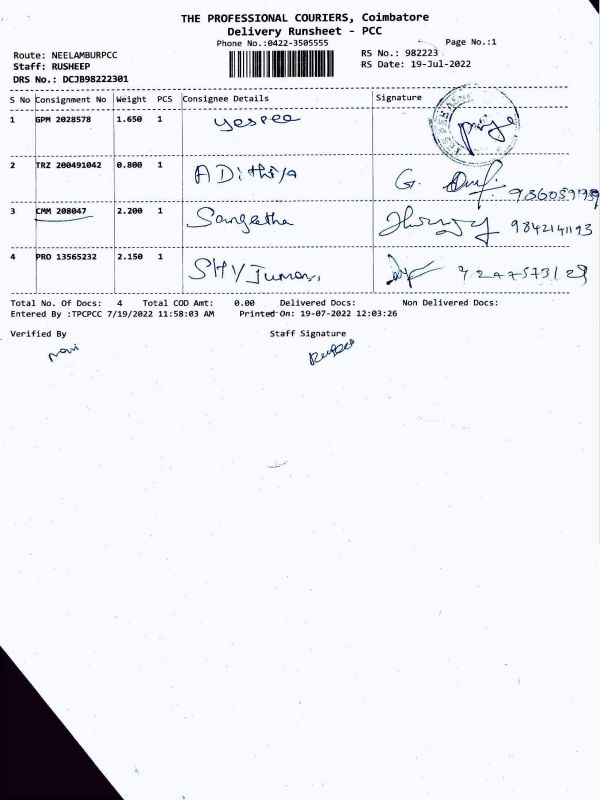 THE PROFESSIONAL COURIERS, Coimbatore
Delivery Runsheet - PCC
Phone No.:0422-3505555 Page No.:1
Route: NEELAMBURPCC RS No.: 982223
Staff: RUSHEEP RS Date: 19-Jul-2022
DRS No.: DCJB98222301
S No Consignment No Weight PCS Consignee Details Signature
1 GPM 2028578 1.650 1 yespee
2 TRZ 200491042 0.800 1 ADithiya G.
3 CMM 208047 2.200 1 Sangeetha 9842141193
4 PRO 13565232 2.150 1
Total No. Of Docs: 4 Total COD Amt: 0.00 Delivered Docs: Non Delivered Docs:
Entered By :TPCPCC 7/19/2022 11:58:03 AM Printed On: 19-07-2022 12:03:26
Verified By Staff Signature